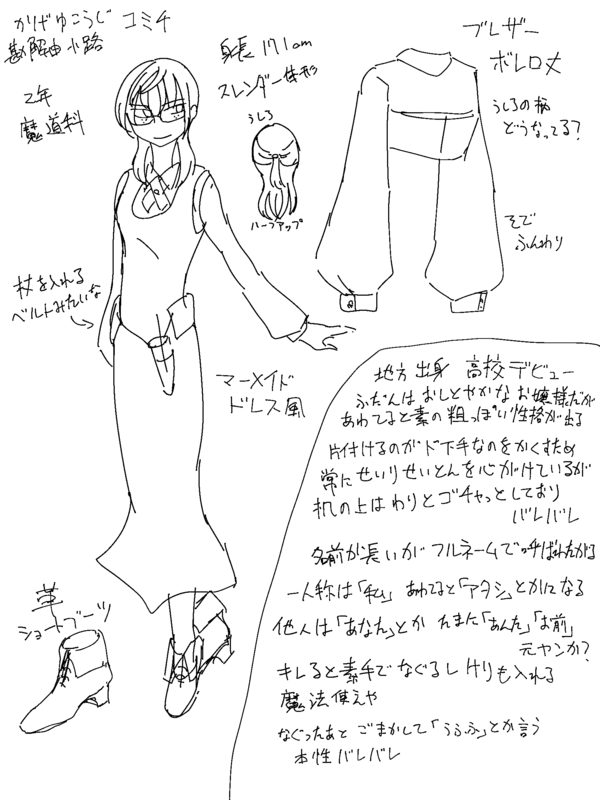 かりがゆこうじ コミチ
勘解由小路
2年
魔道科
身長 171cm
スレンダー体形
うしろ
ハーフアップ
ブレザー
ボレロ丈
うしろの柄
どうなってる？
そで
ふんわり
杖を入れる
ベルトみたいな
マーメイド
ドレス風
革
ショートブーツ
地方出身 高校デビュー
ふだんは おしとやかな お嬢様だが
あわてると素の粗っぽい性格が出る
片付けるのがド下手なのをかくすため
常に せいりせいとんを心がけているが
机の上は わりとゴチャっとしており
バレバレ
名前が長いが フルネームで呼ばれたがる
一人称は「私」 あわてると「アタシ」とかになる
他人は「あなた」とか たまに「あんた」「お前」
元ヤンか？
キレると素手で なぐるし けりも入れる
魔法使えや
なぐったあと ごまかして「うふふ」とか言う
本性バレバレ